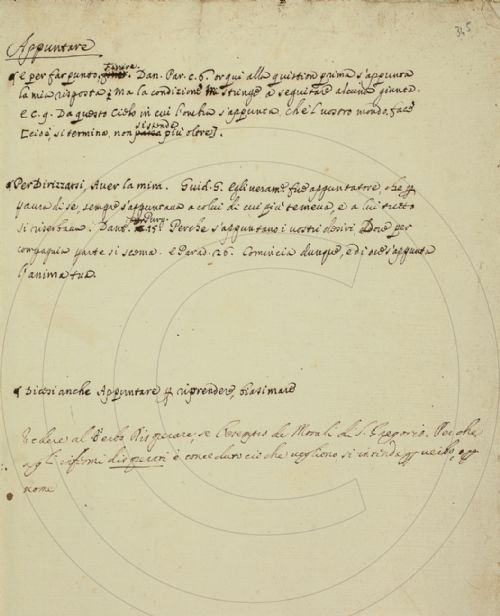 345
Appuntare
¶ E per far punto, finire. Dan. Par. c. 6. or qui alla quistion prima s'appunta
la mia risposta; Ma la condizione Mi stringe a seguitare alcuna giunta.
E c. 9. Da questo Cielo in cui l'ombra s'appunta, che'l vostro mondo face
[cioè, si termina, non si spande più oltre].
¶ Per Dirizzarsi, Aver la mira. Guid. G. Egli veram.e fu appuntatore, che p
paura di se, sempre s'appuntava a colui di cui più temeva, e a lui tutto
si riserbava. Dant. Purg. 15. Perche s'appuntano i vostri desiri Dove per
compagnia parte si scema. E Parad. 26. Comincia dunque, e di ove s'appunta
l'anima tua.
¶ Dicesi anche Appuntare p riprendere, biasimare
Vedere al Verbo Disperare, se l'esempio de Morali di S. Gregorio. Perche
agli infermi disperati è conceduto ciò che vogliono, si intenda p verbo, o p
nome